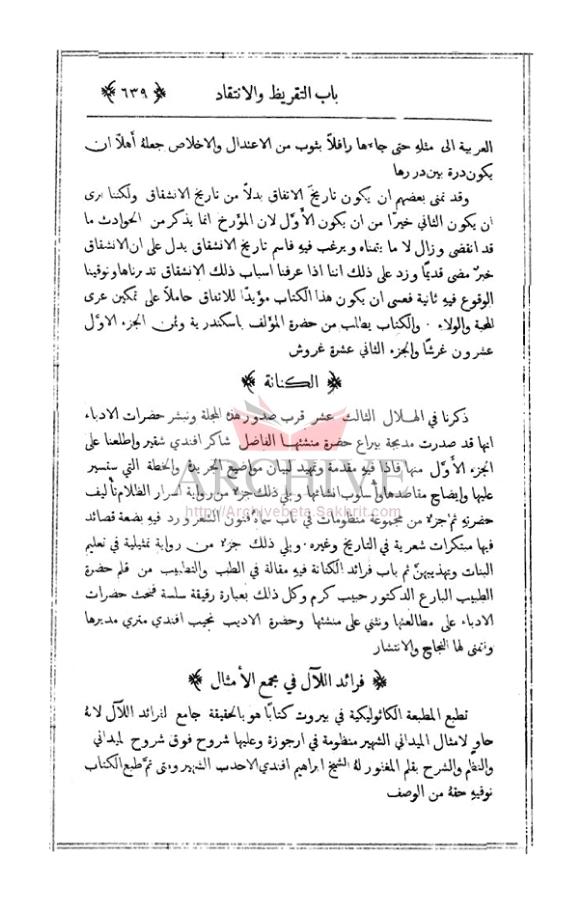 باب التقريظ والانتقاد ﴿ ٦٣٩ ﴾
العربية الى مثله حتى جاءها رافلاً بثوب من الاعتدال والاخلاص جعلهُ أهلاً ان
يكون درة بين دررها
وقد تمنى بعضهم ان يكون تاريخَ الاتفاق بدلاً من تاريخ الانشقاق ولكننا نرى
ان يكون الثاني خيرًا من ان يكون الأوَّل لان المؤرخ انما يذكر من الحوادث ما
قد انقضى وزال لا ما يتمناه ويرغب فيهِ فاسم تاريخ الانشقاق يدل على ان الانشقاق
خبرٌ مضى قديمًا وزد على ذلك اننا اذا عرفنا اسباب ذلك الانشقاق تدبرناها وتوقينا
الوقوع فيهِ ثانية فعسى ان يكون هذا الكتاب مؤيدًا للاتفاق حاملاً على تمكين عرى
المحبة والولاء . والكتاب يطلب من حضرة المؤلف باسكندرية وثمن الجزء الاوَّل
عشرون غرشًا والجزء الثاني عشرة غروش
﴿ الكنانة ﴾
ذكرنا في الهلال الثالث عشر قرب صدور هذه المجلة ونبشر حضرات الادباء
انها قد صدرت مدبجة بيراع حضرة منشئها الفاضل شاكر افندي شقير واطلعنا على
الجزء الأوَّل منها فاذا فيهِ مقدمة وتمهيد لبيان مواضيع الجريدة والخطة التي ستسير
عليها وايضاح مقاصدها وأسلوب انشائها ويلي ذلك جزء من رواية اسرار الظلام تأليف
حضرتهِ ثم جزء من مجموعة منظومات في باب سماهُ فنون الشعر ورد فيهِ بضعة قصائد
فيها مبتكرات شعرية في التاريخ وغيره . ويلي ذلك جزء من رواية تمثيلية في تعليم
البنات وتهذيبهنَّ ثم باب فرائد الكنانة فيهِ مقالة في الطب والتطبيب من قلم حضرة
الطبيب البارع الدكتور حبيب كرم وكل ذلك بعبارة رقيقة سلسة فنحث حضرات
الادباء على مطالعتها ونثني على منشئها وحضرة الاديب نجيب افندي متري مديرها
ونتمنى لها النجاح والانتشار
﴿ فرائد اللآل في مجمع الأمثال ﴾
تطبع المطبعة الكاثوليكية في بيروت كتابًا هو بالحقيقة جامع لفرائد اللآل لانهُ
حاوٍ لامثال الميداني الشهير منظومة في ارجوزة وعليها شروح فوق شروح الميداني
والنظم والشرح بقلم المغفور لهُ الشيخ ابراهيم افندي الاحدب الشهير ومتى تم طبع الكتاب
نوفيهِ حقهُ من الوصف
ARCHIVE
http://Archivebeta.Sakhrit.com